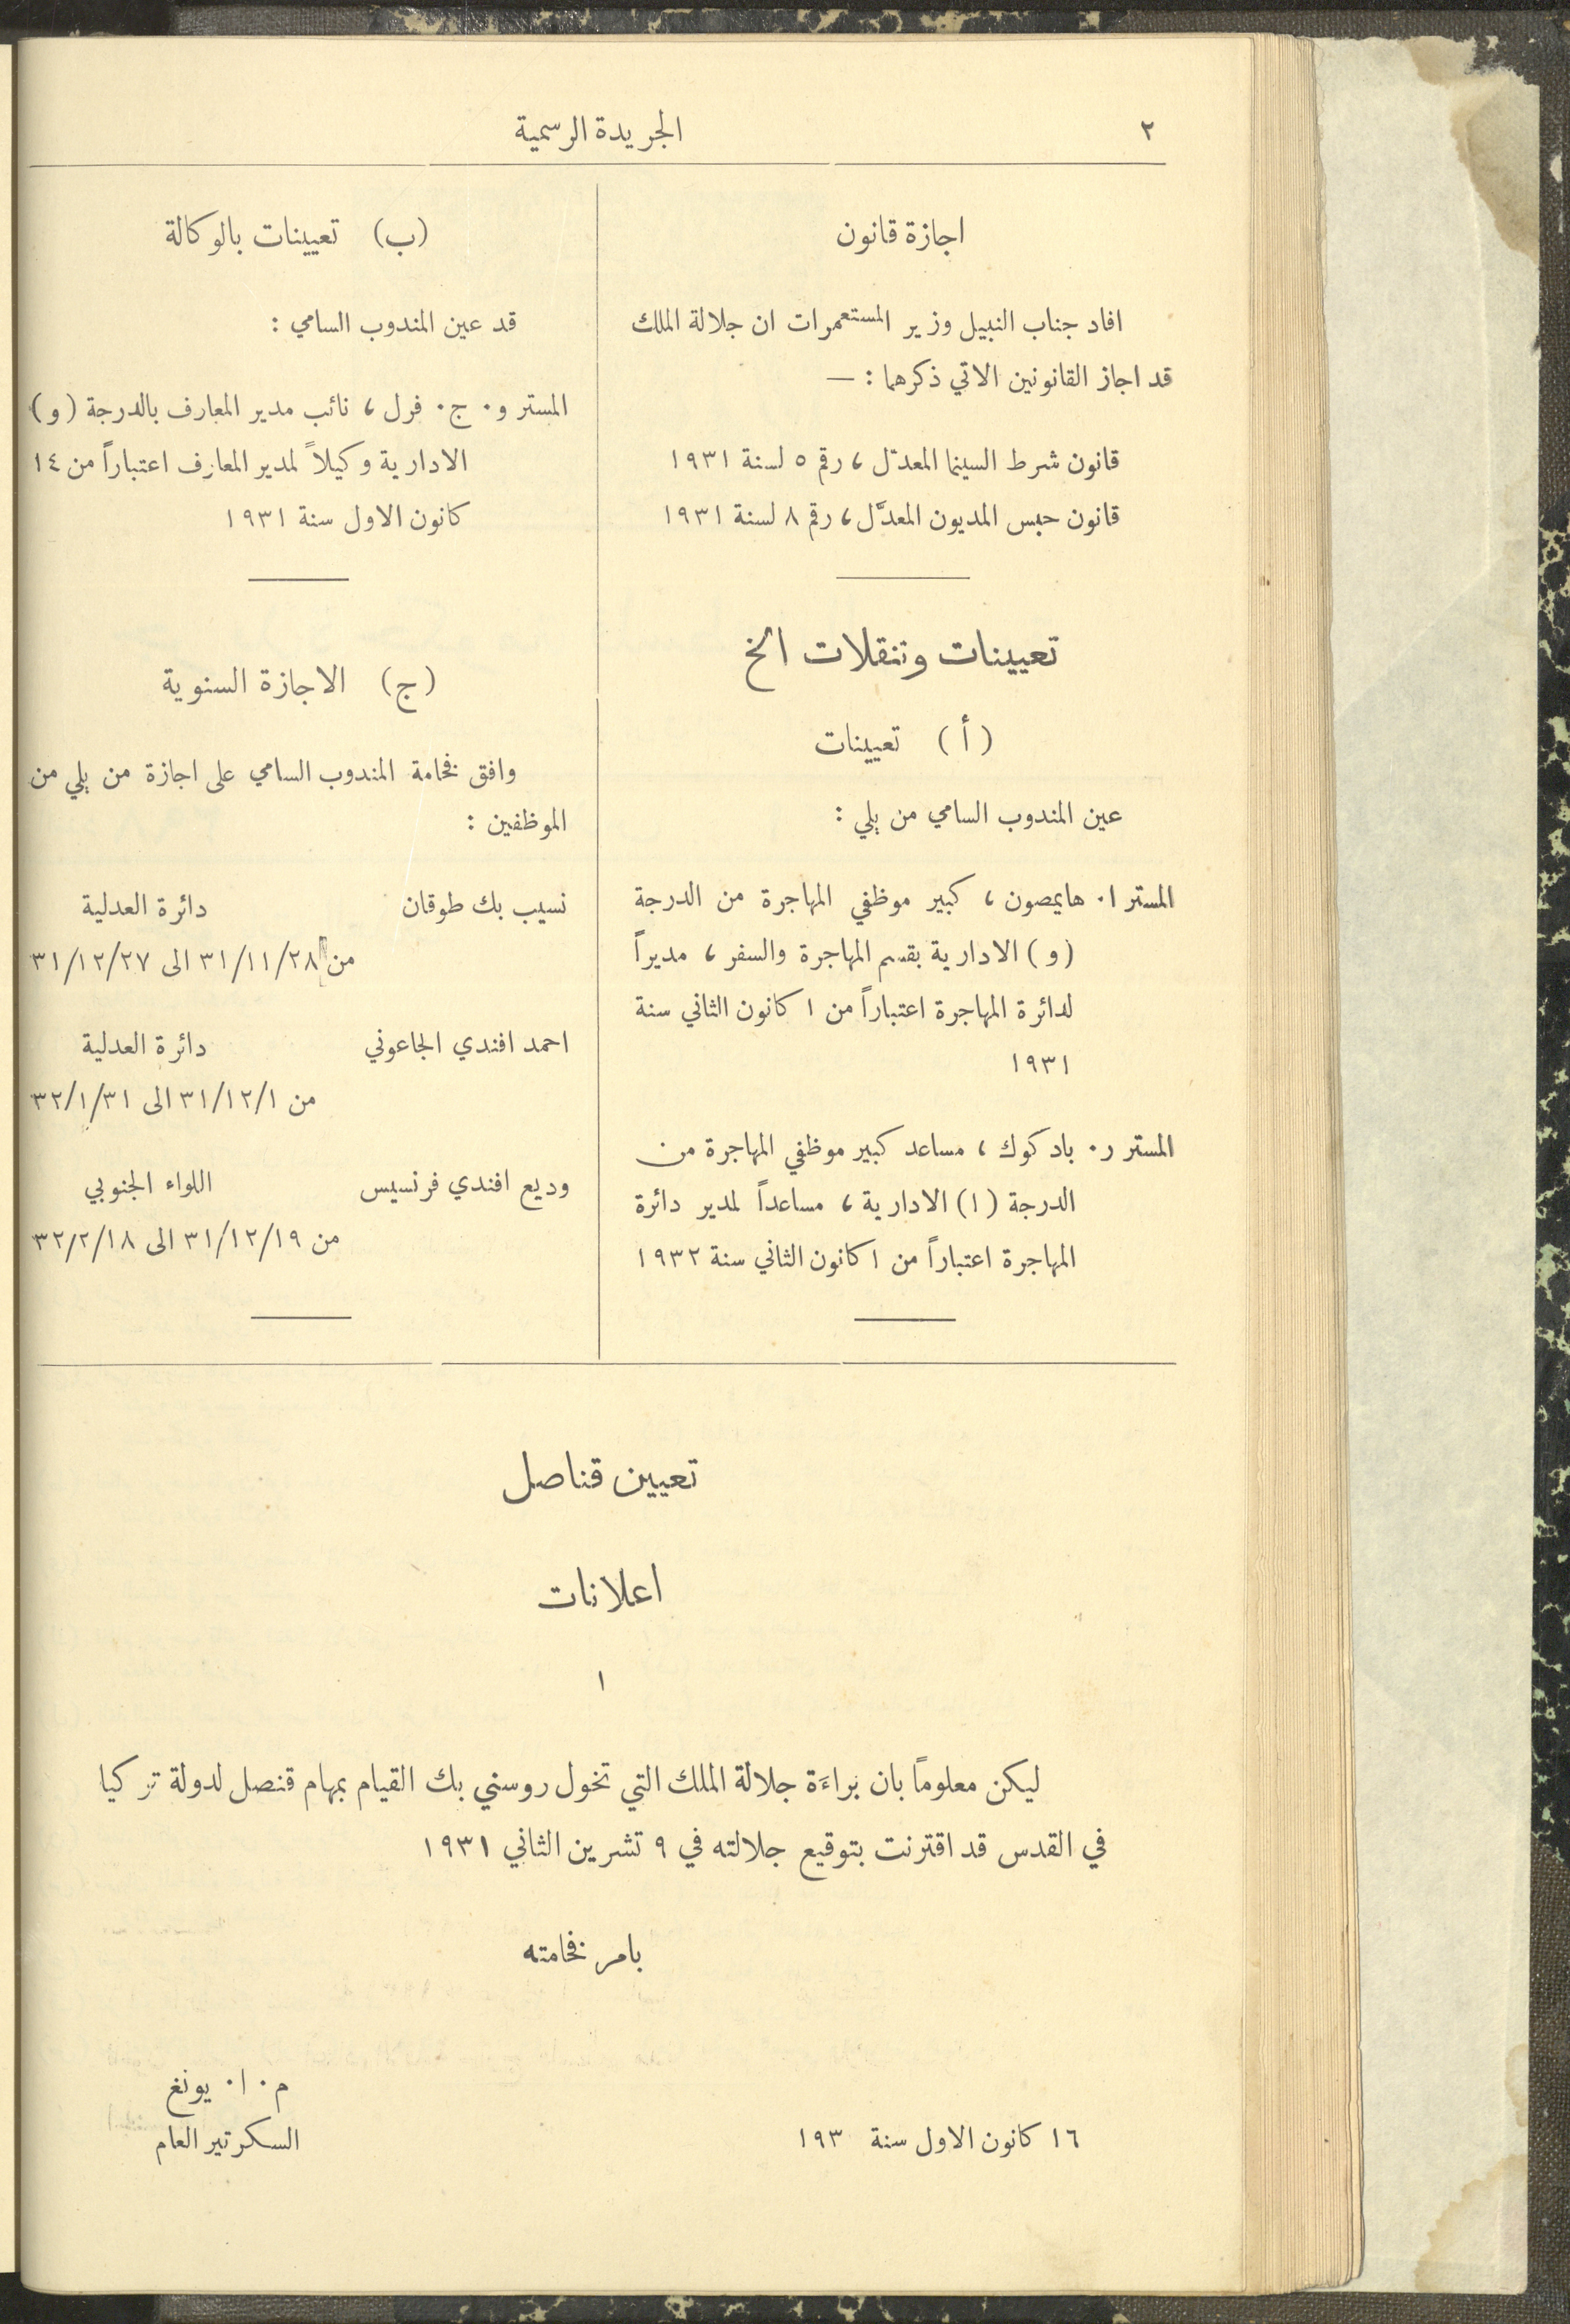 ٢
الجريدة الرسمية
اجازة قانون
افاد جناب النبيل وزير المستعمرات ان جلالة الملك
قد اجاز القانونين الاتي ذكرهما : —
قانون شرط السينما المعدّل ، رقم ٥ لسنة ١٩٣١
قانون حبس المديون المعدَّل ، رقم ٨ لسنة ١٩٣١
تعيينات وتنقلات الخ
(أ) تعيينات
عين المندوب السامي من يلي :
المستر ا. هايمصون ، كبير موظفي المهاجرة من الدرجة
(و) الادارية بقسم المهاجرة والسفر ، مديراً
لدائرة المهاجرة اعتباراً من ١ كانون الثاني سنة
١٩٣١
المستر ر. بادكوك ، مساعد كبير موظفي المهاجرة من
الدرجة (ا) الادارية ، مساعداً لمدير دائرة
المهاجرة اعتباراً من ١ كانون الثاني سنة ١٩٣٢
(ب) تعيينات بالوكالة
قد عين المندوب السامي :
المستر و. ج. فرل ، نائب مدير المعارف بالدرجة (و)
الادارية وكيلاً لمدير المعارف اعتباراً من ١٤
كانون الاول سنة ١٩٣١
(ج) الاجازة السنوية
وافق فخامة المندوب السامي على اجازة من يلي من
الموظفين :
نسيب بك طوقان دائرة العدلية
من ٣١/١١/٢٨ الى ٣١/١٢/٢٧
احمد افندي الجاعوني دائرة العدلية
من ٣١/١٢/١ الى ٣٢/١/٣١
وديع افندي فرنسيس اللواء الجنوبي
من ٣١/١٢/١٩ الى ٣٢/٢/١٨
تعيين قناصل
اعلانات
١
ليكن معلوماً بان براءَة جلالة الملك التي تخول روسني بك القيام بمهام قنصل لدولة تركيا
في القدس قد اقترنت بتوقيع جلالته في ٩ تشرين الثاني ١٩٣١
بامر فخامته
م. ا. يونغ
١٦ كانون الاول سنة ١٩٣ السكرتير العام